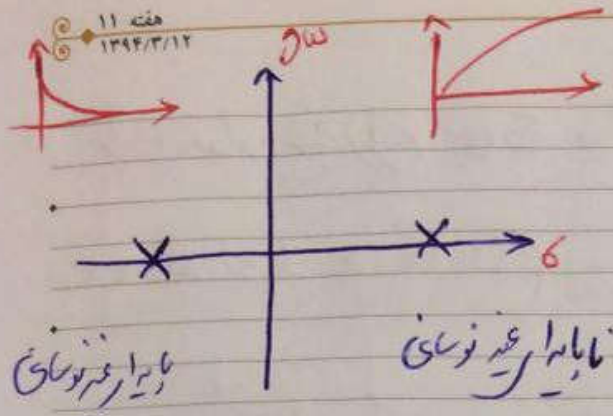 هفته ۱۱
۱۳۹۴/۳/۱۲
jω
σ
ناپایدار غیر نوسانی
پایدار غیر نوسانی